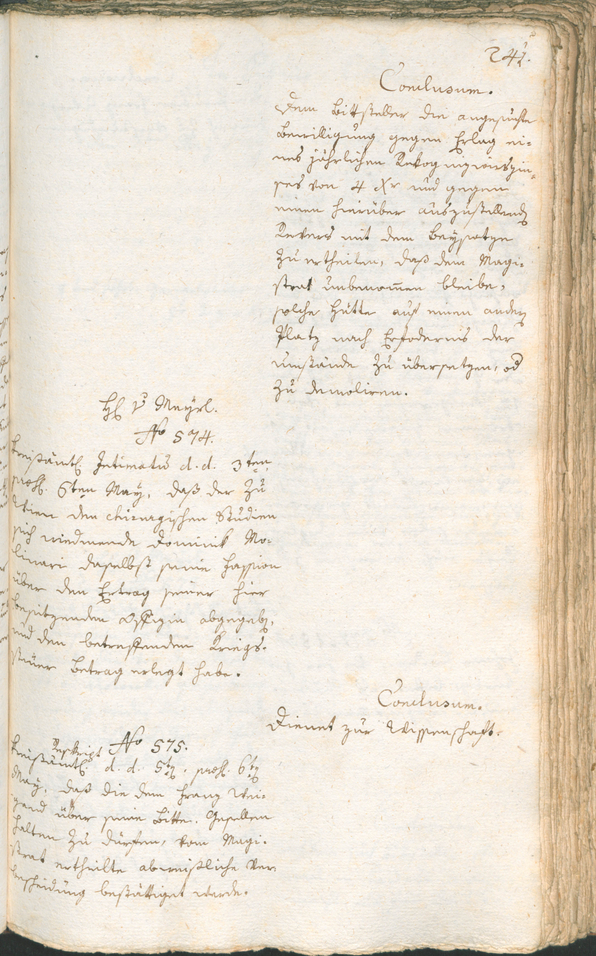 241.
Conclusum.
Dem Bittsteller die angesuchte
Bewilligung gegen Erlag ei-
nes jährlichen Rekognizionszin-
ses von 4 Xr und gegen
einen hierüber auszustellend
Revers mit dem Beysatze
zu ertheilen, daß dem Magi-
strat unbenomen bleibe,
solche Hütte auf einen andern
Platz nach Erfoderniß der
umstände zu übersetzen, od
zu demoliren.
H v Mayrl.
No 574.
Kreisämtl Intimatum d.d. 3ten
praes. 6ten May, daß der zu
Wien den chirurgischen Studien
sich wiedmende Dominik Mo-
linari daselbst seine Fassion
über den Ertrag seiner hier
besitzenden Offizin abgegeb,
und den betreffenden Kriegs-
steuer Betrag erlegt habe.
Conclusum.
Dienet zur Wissenschaft.
No 575.
Kreisämtl Reskript d.d. 5t, praes. 6t
May, daß die dem Franz Wei-
gand über seine Bitte, Gesellen
halten zu dürfen, vom Magi-
strat ertheilte abweisliche Ver-
bescheidung bestättiget werde.